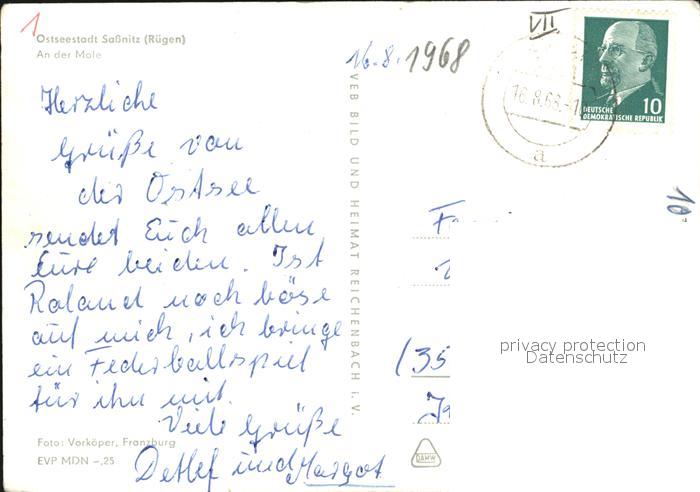 1
Ostseestadt Saßnitz (Rügen)
An der Mole
Herzliche
Grüße von
der Ostsee
sendet Euch allen
Eure beiden. Ist
Roland noch böse
auf mich, ich bringe
ein Federballspiel
für ihn mit.
Viele Grüße
Detlef und Margot
Foto: Vorköper, Franzburg
EVP MDN -,25
VEB BILD UND HEIMAT REICHENBACH i. V.
16.8.1968
VII
16.8.68.-1
a
10
DEUTSCHE
DEMOKRATISCHE REPUBLIK
10
(35
privacy protection
Datenschutz
DAMW